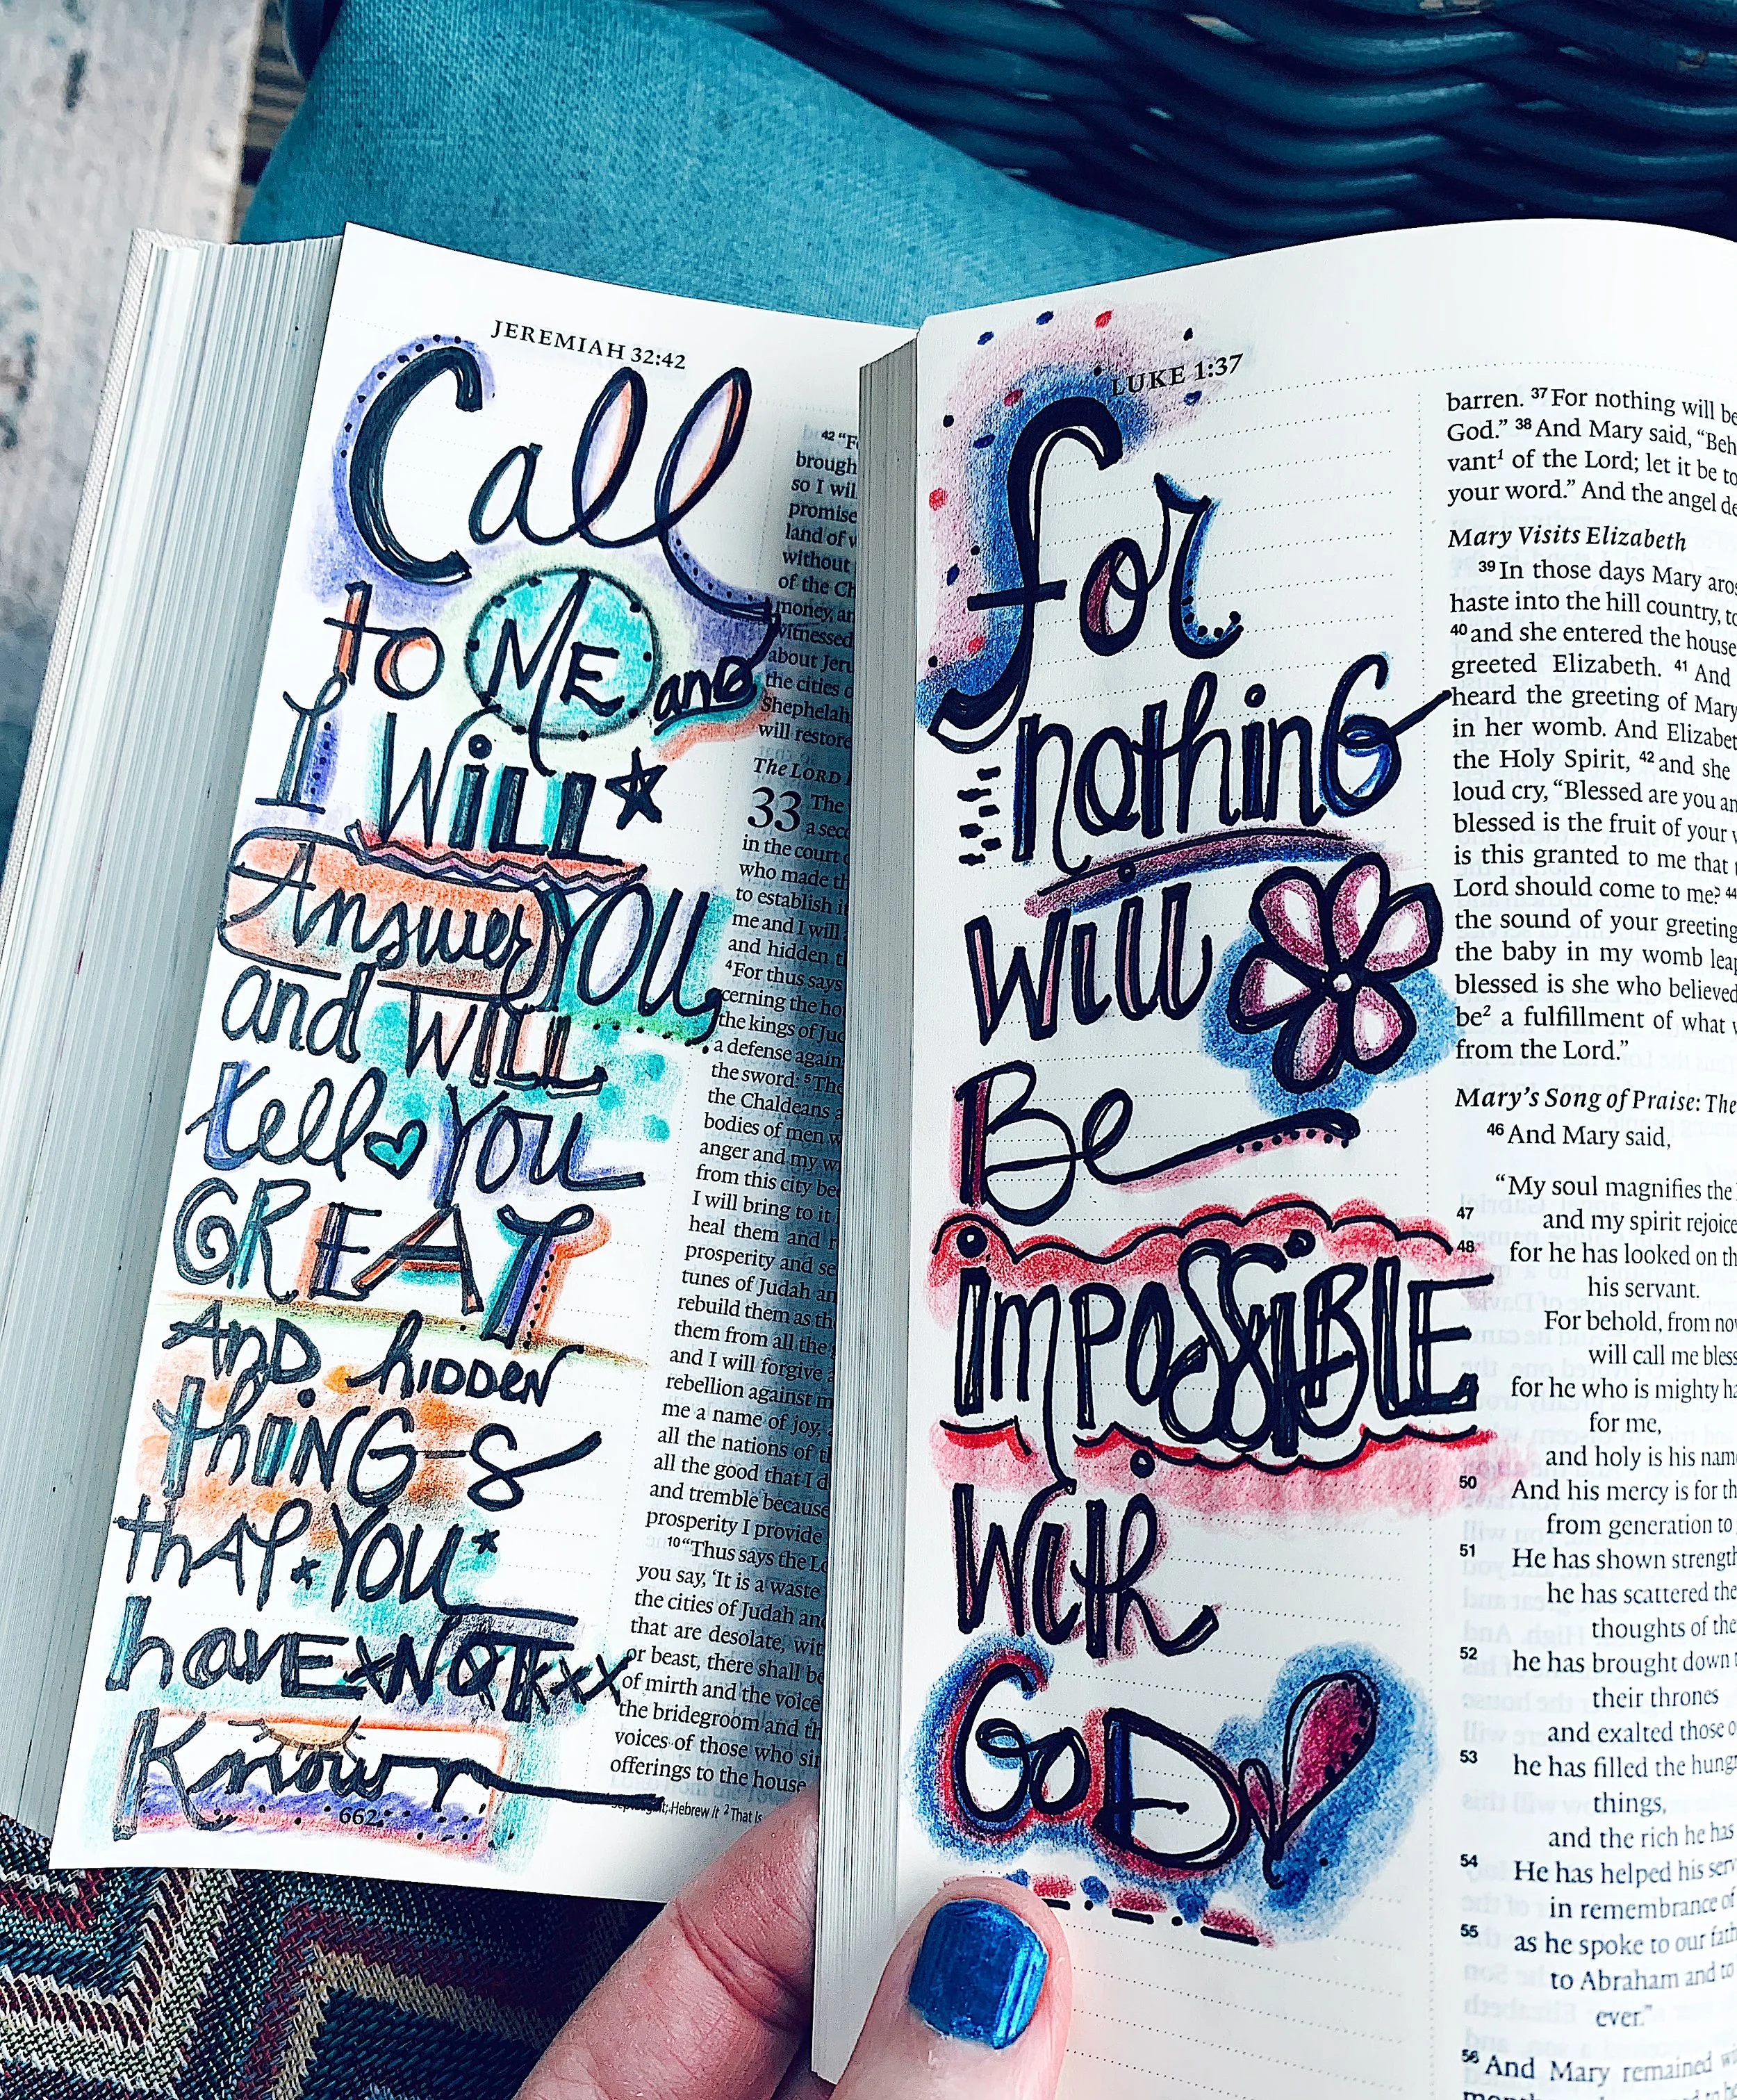 JEREMIAH 32:42
Call
to ME and
I WiLL
Answer YOU,
and WiLL
tell YOU
GREAT
AND hiDDEN
thiNGS
thAT YOU
havE NOT
Know
662
42 “F
brough
so I wil
promise
land of
without
of the Ch
money, an
witnessed
about Jeru
the cities o
Shephelah
will restore
The LORD
33 The
a seco
in the court
who made th
to establish it
me and I will
and hidden
4 For thus says
cerning the ho
the kings of Jud
a defense again
the sword: 5 The
the Chaldeans a
bodies of men w
anger and my w
from this city bec
I will bring to it
heal them and r
prosperity and se
tunes of Judah an
rebuild them as th
them from all the
and I will forgive
rebellion against m
me a name of joy,
all the nations of
all the good that I d
and tremble because
prosperity I provide
10 “Thus says the Lo
you say, ‘It is a waste
the cities of Judah and
that are desolate, wit
or beast, there shall be
of mirth and the voice
the bridegroom and th
voices of those who sin
offerings to the house
Hebrew it 2 That is
LUKE 1:37
for
nothinG
will
Be
imPOSSiBLE
with
GoD
barren. 37 For nothing will be
God.” 38 And Mary said, “Beh
vant1 of the Lord; let it be to
your word.” And the angel de
Mary Visits Elizabeth
39 In those days Mary aros
haste into the hill country, to
40 and she entered the house
greeted Elizabeth. 41 And
heard the greeting of Mary
in her womb. And Elizabet
the Holy Spirit, 42 and she
loud cry, “Blessed are you an
blessed is the fruit of your
is this granted to me that
Lord should come to me? 44
the sound of your greeting
the baby in my womb leap
blessed is she who believed
be2 a fulfillment of what
from the Lord.”
Mary’s Song of Praise: The
46 And Mary said,
“My soul magnifies the
47 and my spirit rejoice
48 for he has looked on th
his servant.
For behold, from now
will call me bless
for he who is mighty ha
for me,
and holy is his nam
50 And his mercy is for th
from generation to
51 He has shown strength
he has scattered the
thoughts of the
52 he has brought down
their thrones
and exalted those o
53 he has filled the hung
things,
and the rich he has
54 He has helped his serv
in remembrance of
55 as he spoke to our fath
to Abraham and to
ever.”
56 And Mary remained wi